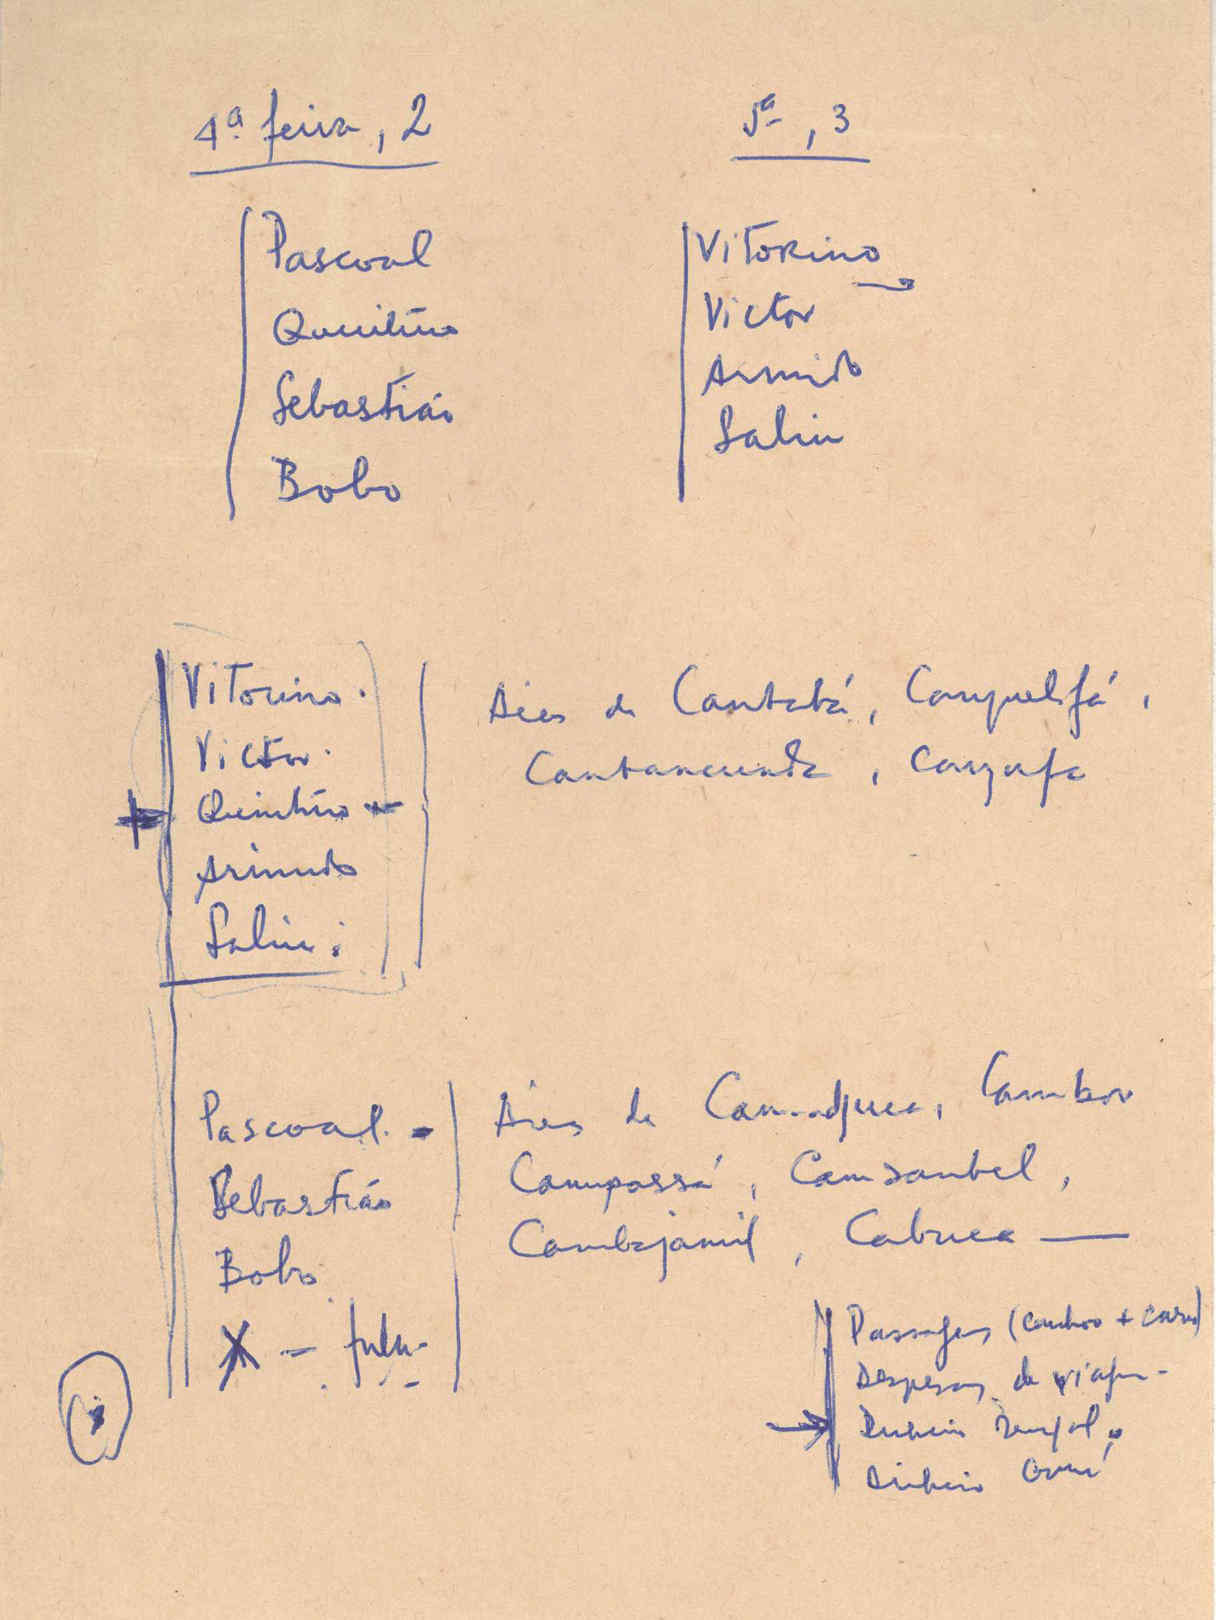 4ª feira, 2
5ª, 3
Pascoal
Quintino
Sebastião
Bobo
Vitorino
Victor
Armindo
Salin
Vitorino.
Victor.
Quintino
Armindo
Salin
Áreas de Cantabá, Canquelifá,
Cantanecunda, Canjufa
Pascoal.
Sebastião
Bobo
X —
Áreas de Camadjuca, Cambor
Campassá, Camsambel,
Cambajamil, Cabuca —
Passagens (cambio + carro)
Despesas de viagem
Dinheiro Senegal
Dinheiro